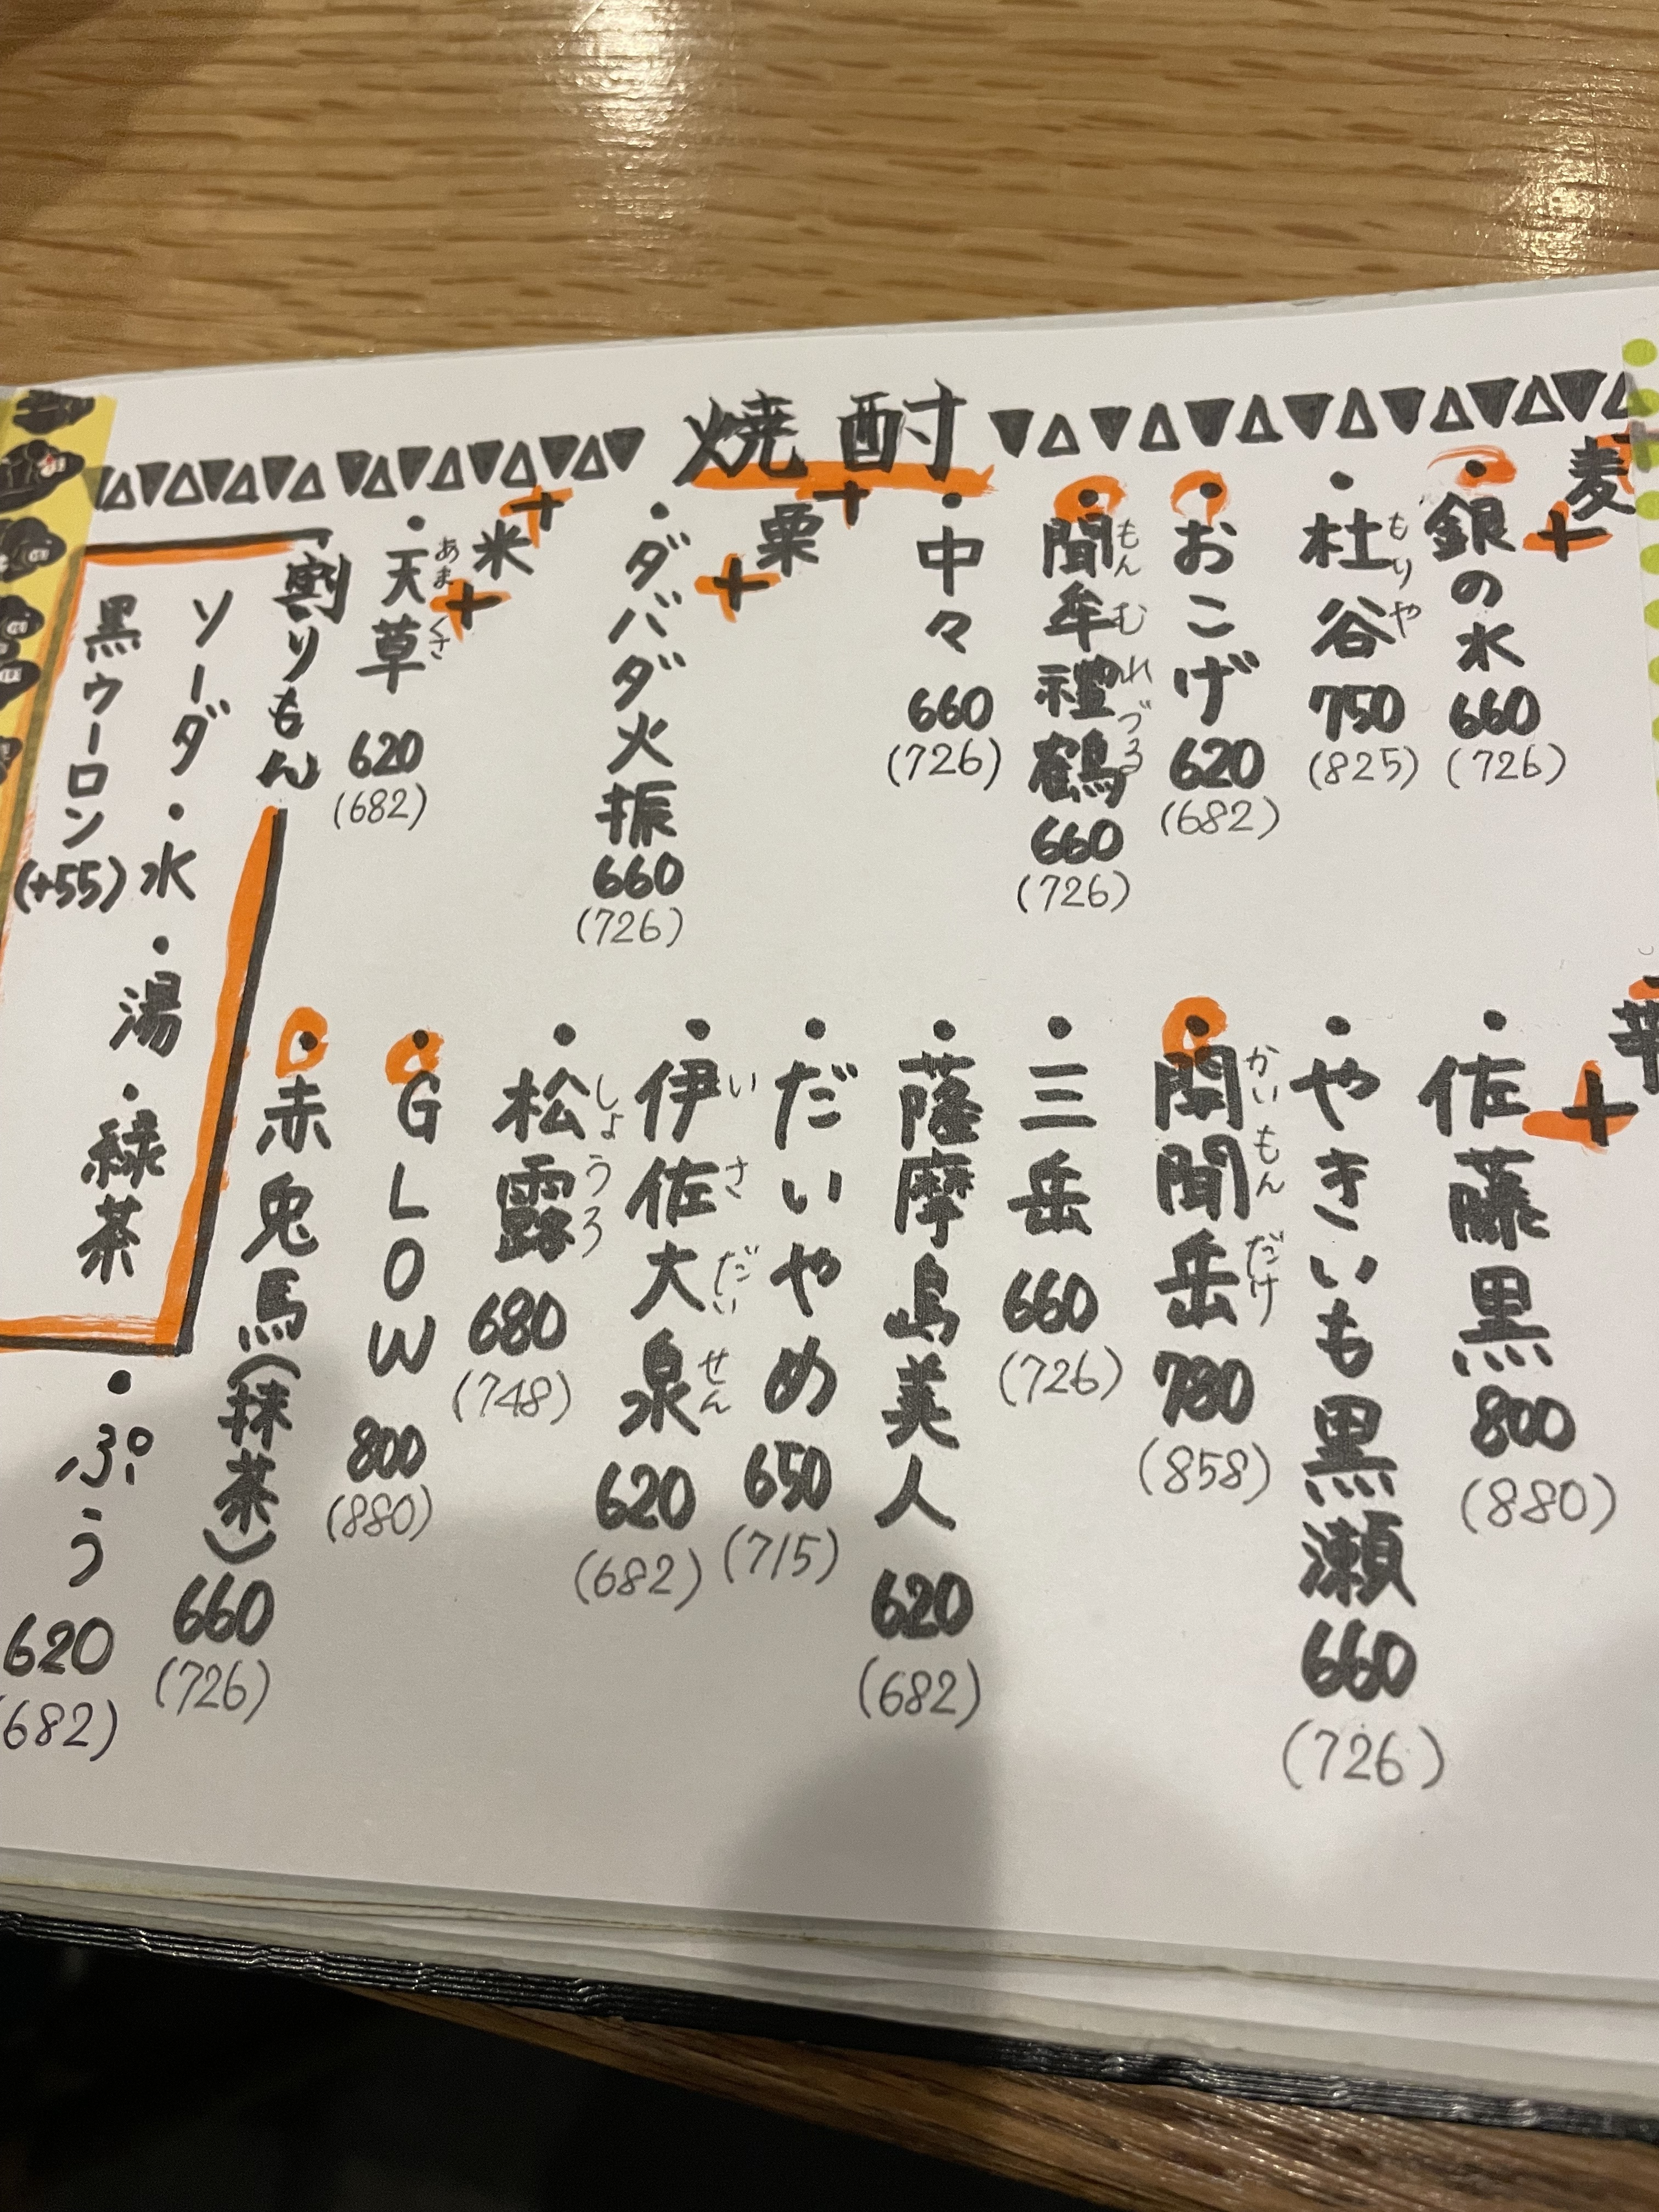 焼酎
麦
・銀の水 660 (726)
・杜谷 750 (825)
もりや
・おこげ 620 (682)
・聞牟禮鶴 660 (726)
もんむれづる
・中々 660 (726)
栗
・ダバダ火振 660 (726)
米
・天草 620 (682)
あまくさ
・佐藤黒 800 (880)
・やきいも黒瀬 660 (726)
・開聞岳 780 (858)
かいもんだけ
・三岳 660 (726)
・薩摩島美人 620 (682)
・だいやめ 650 (715)
・伊佐大泉 620 (682)
いさだいせん
・松露 680 (748)
しょうろ
・GLOW 800 (880)
・赤兎馬(抹茶) 660 (726)
・ぷう 620 (682)
割りもん
ソーダ・水・湯・緑茶
黒ウーロン(+55)